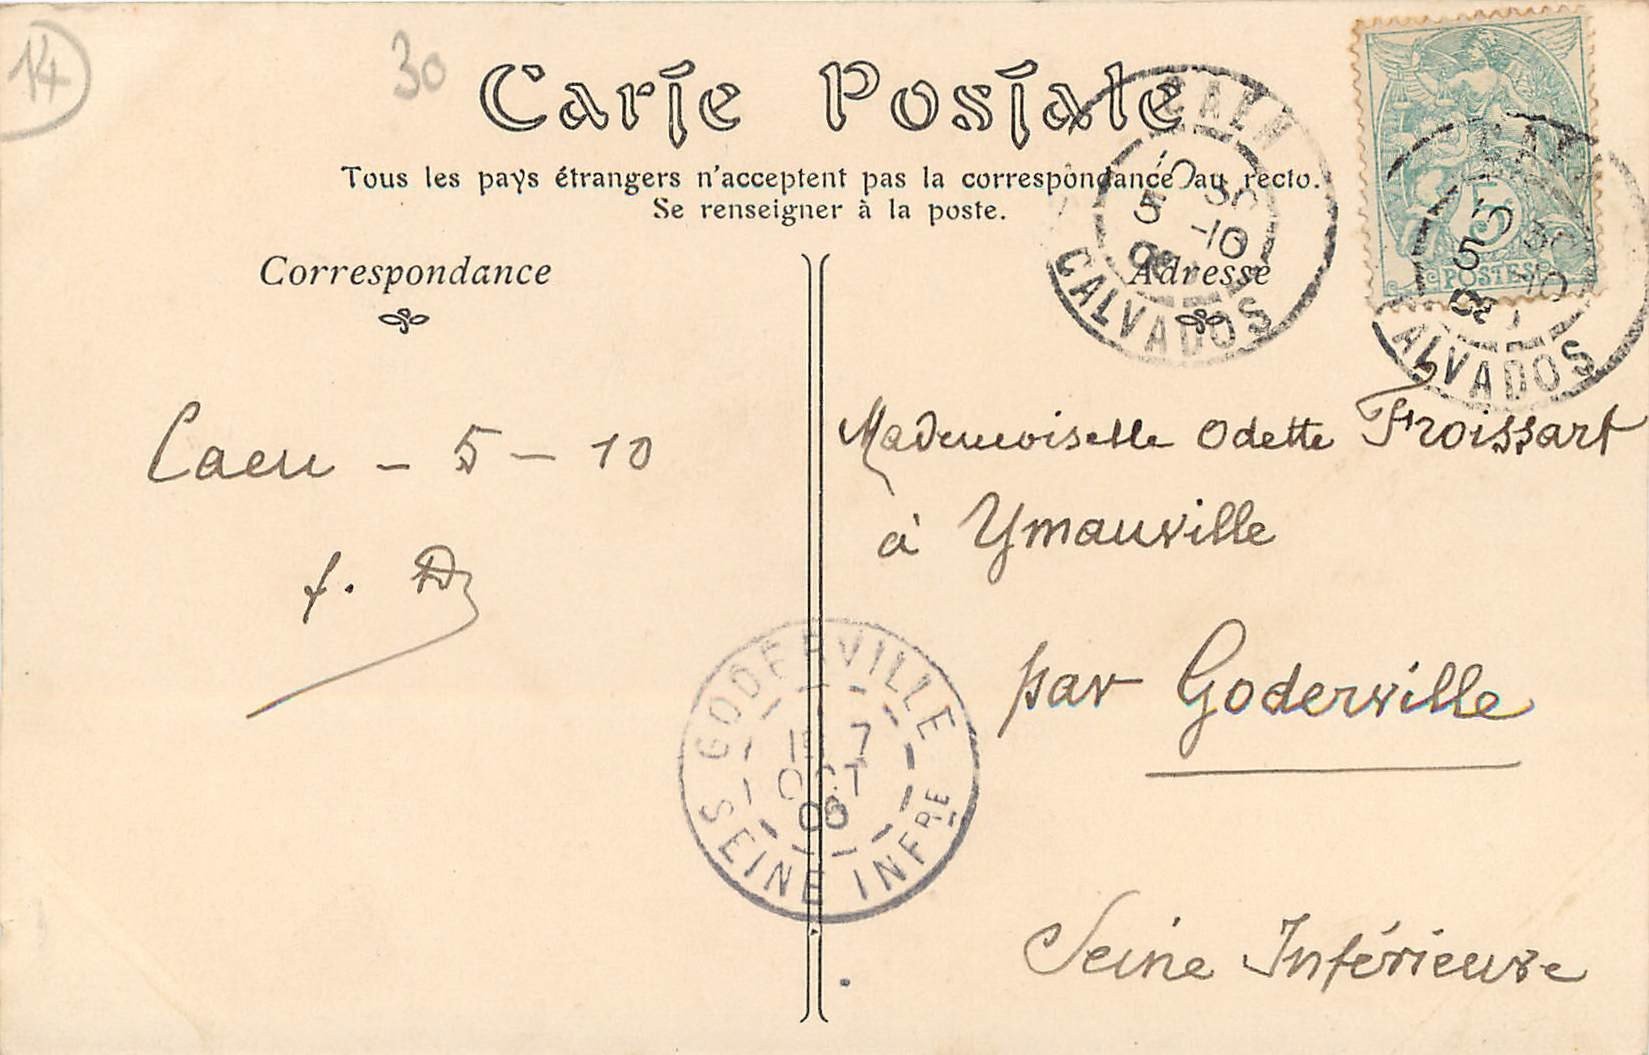 14
30
Carte Postale
Tous les pays étrangers n'acceptent pas la correspondance au recto.
Se renseigner à la poste.
Correspondance
Adresse
CAEN
5 -10
CALVADOS
5
POSTES
5 10
CALVADOS
Caen - 5 - 10
f. D
Mademoiselle Odette Froissart
à Ymauville
par Goderville
Seine Inférieure
GODERVILLE
7
OCT
06
SEINE INFRE